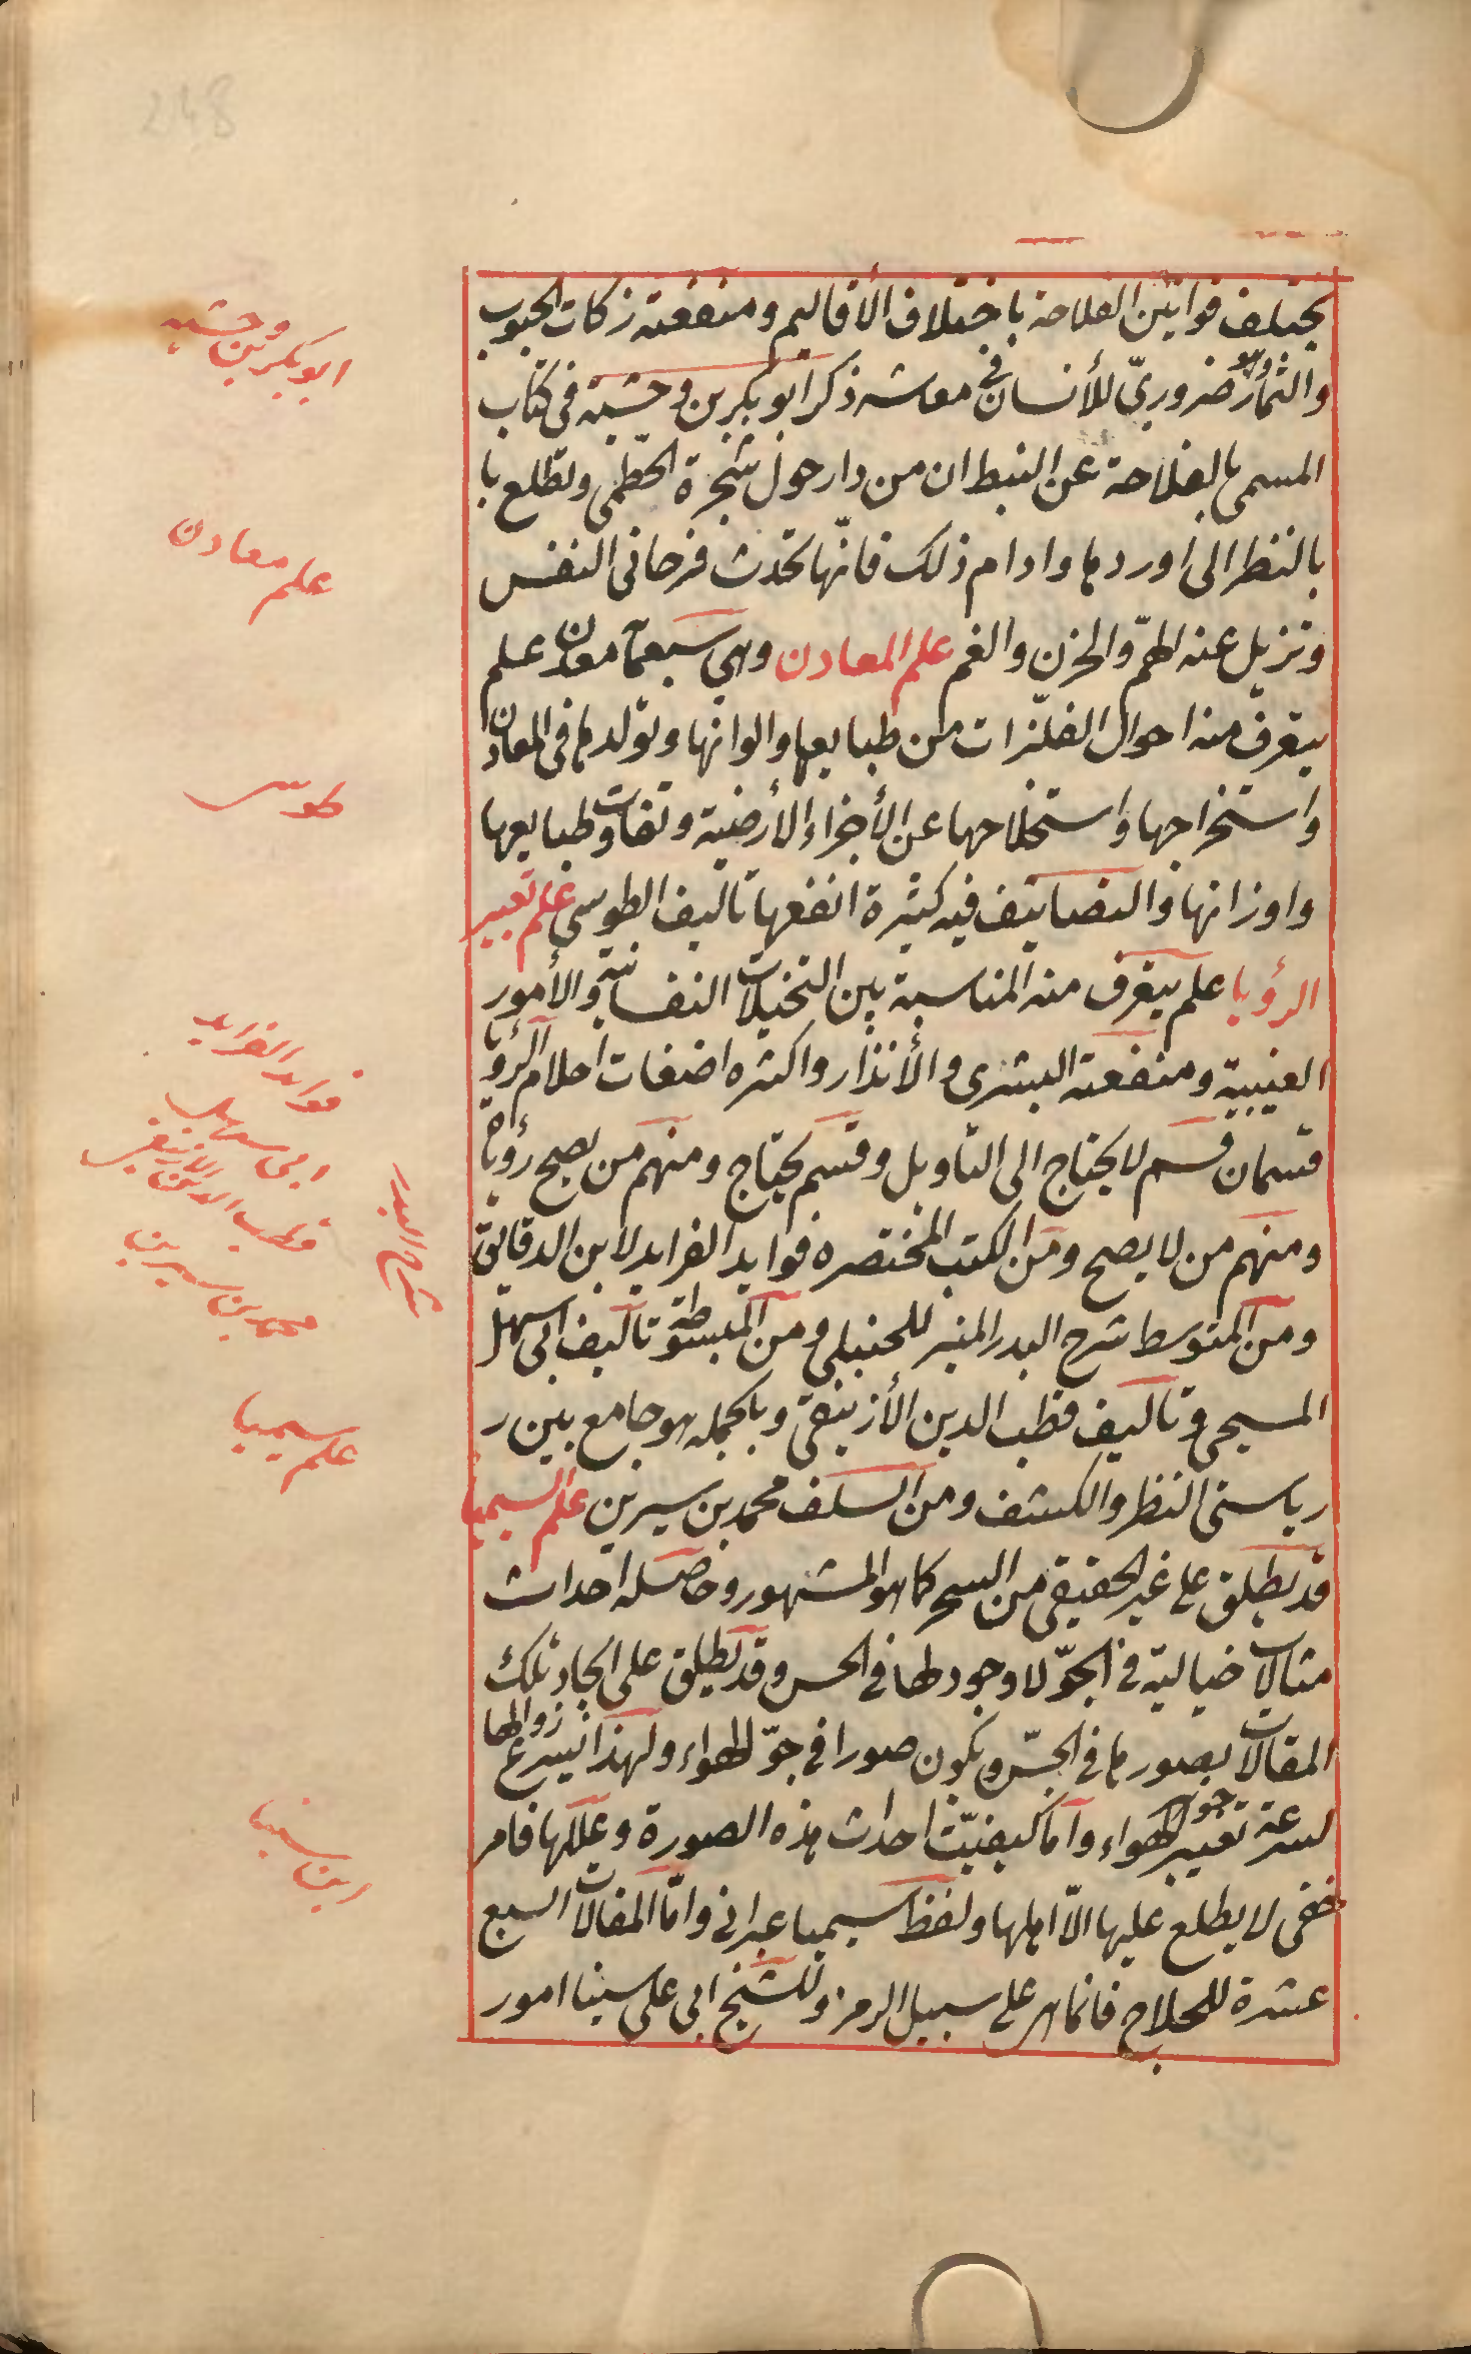 يختلف قوانين الفلاحة باختلاف الأقاليم ومنفعته زكات الحبوب
والثمار وهو ضروريّ للأنسان فى معاشه ذكر ابو بكر بن وحشية فى كتاب
المسمى بالفلاحة عن النبط ان من دار حول شجرة الخطمى وتطلع با
بالنظر الى اوردها وادام ذلك فانّها تحدث فرحا فى النفس
وتزيل عنه الهمّ والحزن والغم علم المعادن وهي سبعمأ معدن علم
يتعرف منه احوال الفلزّات من طبايعها والوانها وتولدها فى المعادن
واستخراجها واستخلاصها عن الأجزاء الأرضية وتفاوت طبايعها
واوزانها والتصانيف فيه كثيرة انفعها تاليف الطوسى علم تعبير
الرؤيا علم يتعرف منه المناسبة بين التخيلات النفسانية والأمور
الغيبية ومنفعته البشرى والأنذار واكثره اضغاث احلام الرؤيا
قسمان قسم لا يحتاج الى التأويل وقسم يحتاج ومنهم من يصح رؤياه
ومنهم من لا يصح ومن الكتب المختصره فوايد الفرايد لابن الدقايق
ومن المتوسط شرح البدر المنير للحنبلى ومن المبسوطة تاليف ابى سهل
المسيحى وتاليف قطب الدين الأزنيقى وبالجمله هو جامع بين ر
رياستى النظر والكشف ومن السلف محمد بن سيرين علم السيميا
قد يطلق على غير الحقيقى من السحر كما هو المشهور وحاصله احداث
مثالات خيالية فى الجوّ لا وجود لها فى الحس وقد يطلق على ايجاد تلك
المقالات بصورها فى الحسّ ويكون صورا فى جوّ الهواء ولهذا يسرع زوالها
لسرعة تغيير جو الهواء وأما كيفيّت احداث هذه الصورة وعللها فامر
خفى لا يطلع عليها الاّ اهلها ولفظ سيميا عبرانى وامّا المقالات السبع
عشرة للحلاج فانما هى على سبيل الرمز وللشيخ ابى على سينا امور
ابو بكر بن وحشيه
علم معادن
طوسى
فوايد الفرايد
ابى سهل
قطب الدين الازنيقى
شرح البدر
محمد بن سيرين
علم سيميا
ابن سينا
248